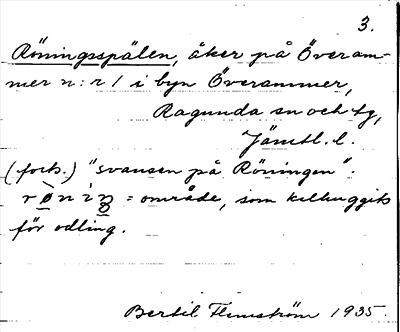 3.
Röningsspälen, åker på Överam-
mer n:r 1 i byn Överammer,
Ragunda sn och tg,
Jämtl. l.
(forts.) "svansen på Röningen".
= område, som kalhuggits
för odling.
Bertil Flemström 1935.